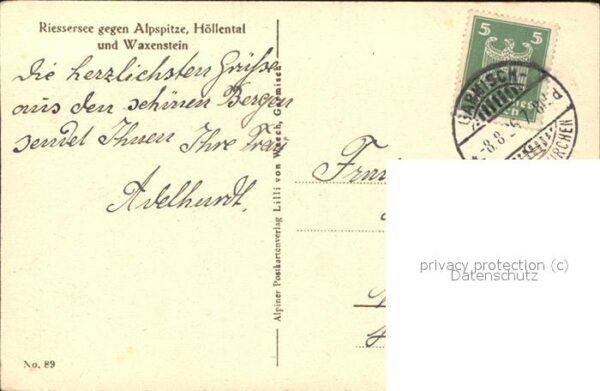 Riessersee gegen Alpspitze, Höllental
und Waxenstein
Die herzlichsten Grüsse
aus den schönen Bergen
sendet Ihnen Ihre Frau
Adelhardt.
Alpiner Postkartenverlag Lilli von Weech, Garmisch
No. 89
5 5
GARMISCH
8.8.25
KIRCHEN
privacy protection (c)
Datenschutz